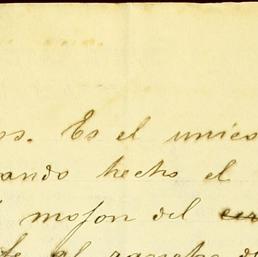 os. Es el unico
ando hecho el
mojon del cer
te al rancho de